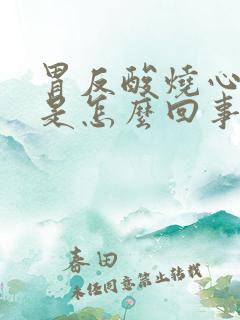 胃反酸燒心
是怎麼回事
春田
未经同意禁止转载